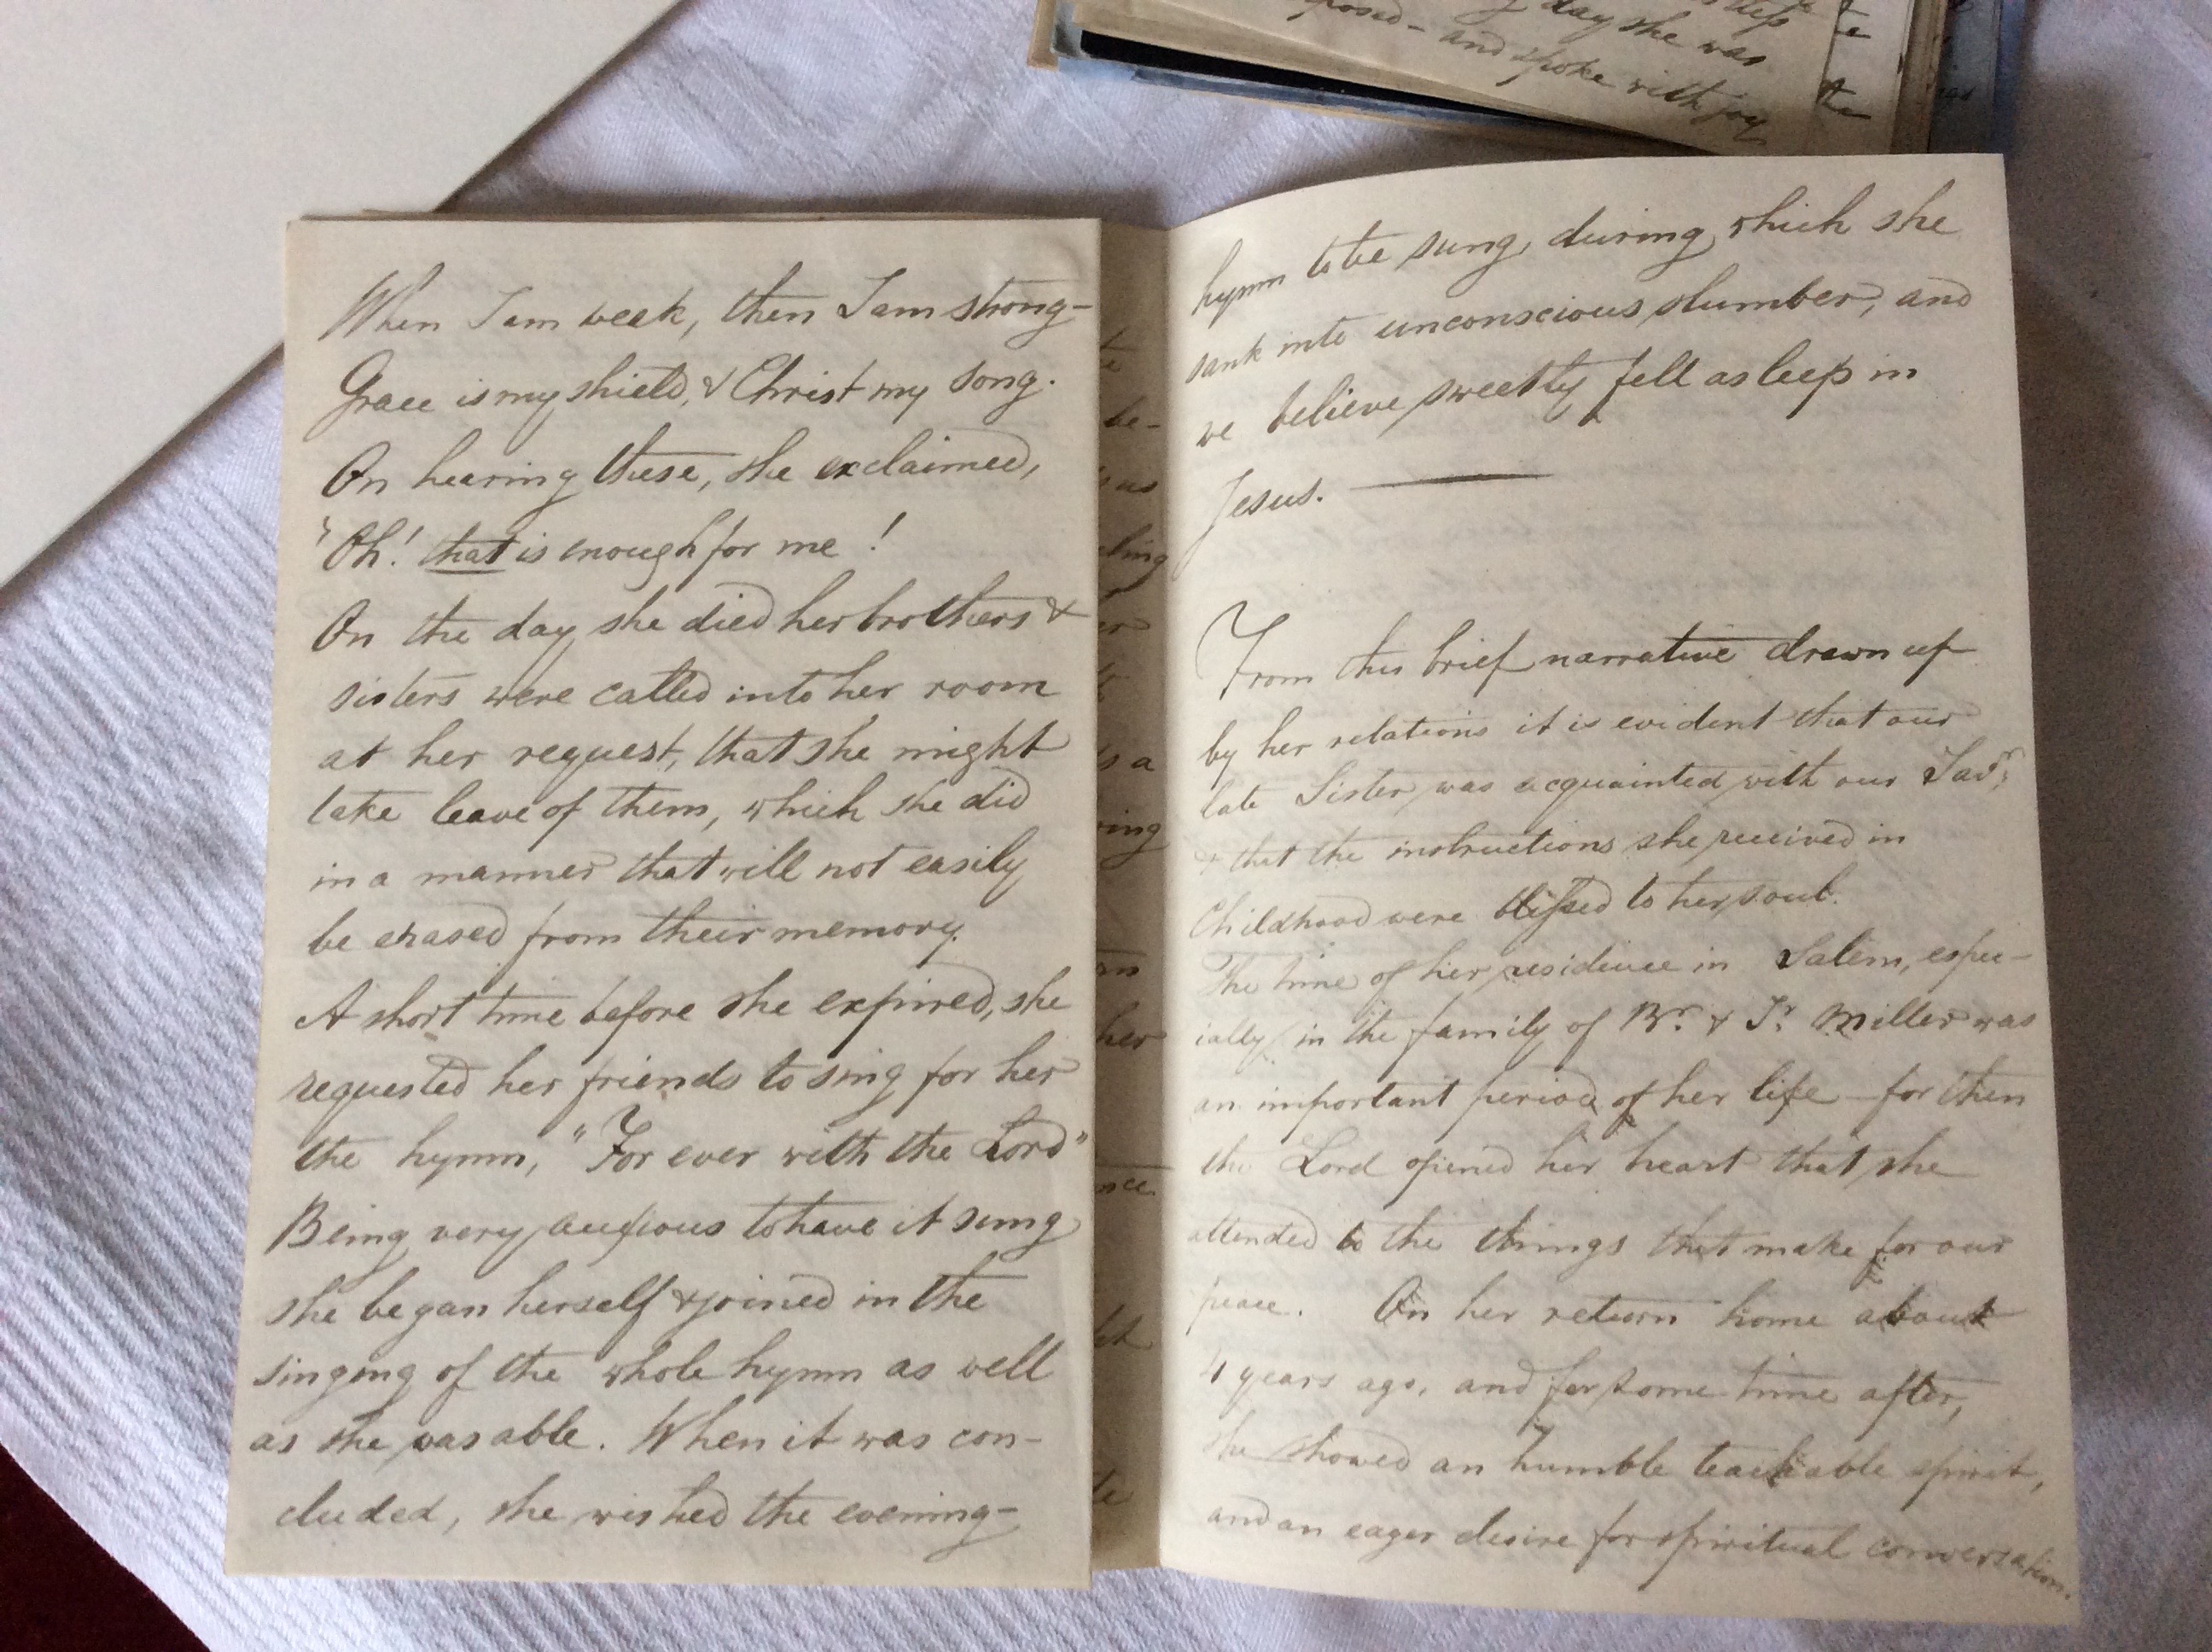 day she was
posed - and spoke with joy
the
When I am weak, then I am strong -
Grace is my shield, & Christ my song.
On hearing these, she exclaimed,
"Oh! that is enough for me!
On the day she died her brothers &
sisters were called into her room
at her request, that she might
take leave of them, which she did
in a manner that will not easily
be erased from their memory.
A short time before she expired, she
requested her friends to sing for her
the hymn, "For ever with the Lord"
Being very anxious to have it sung
she began herself & joined in the
singing of the whole hymn as well
as she was able. When it was con-
cluded, she wished the evening-
hymn to be sung, during which she
sank into unconscious slumber, and
we believe sweetly fell asleep in
Jesus.
From this brief narrative drawn up
by her relations it is evident that our
late Sister was acquainted with our Savr,
& that the instructions she received in
Childhood were blessed to her soul.
The time of her residence in Salem, espec-
ially in the family of Br. & Sr. Miller was
an important period of her life - for then
the Lord opened her heart that she
attended to the things that make for our
peace. On her return home about
4 years ago, and for some time after,
she showed an humble teachable spirit,
and an eager desire for spiritual conversation.